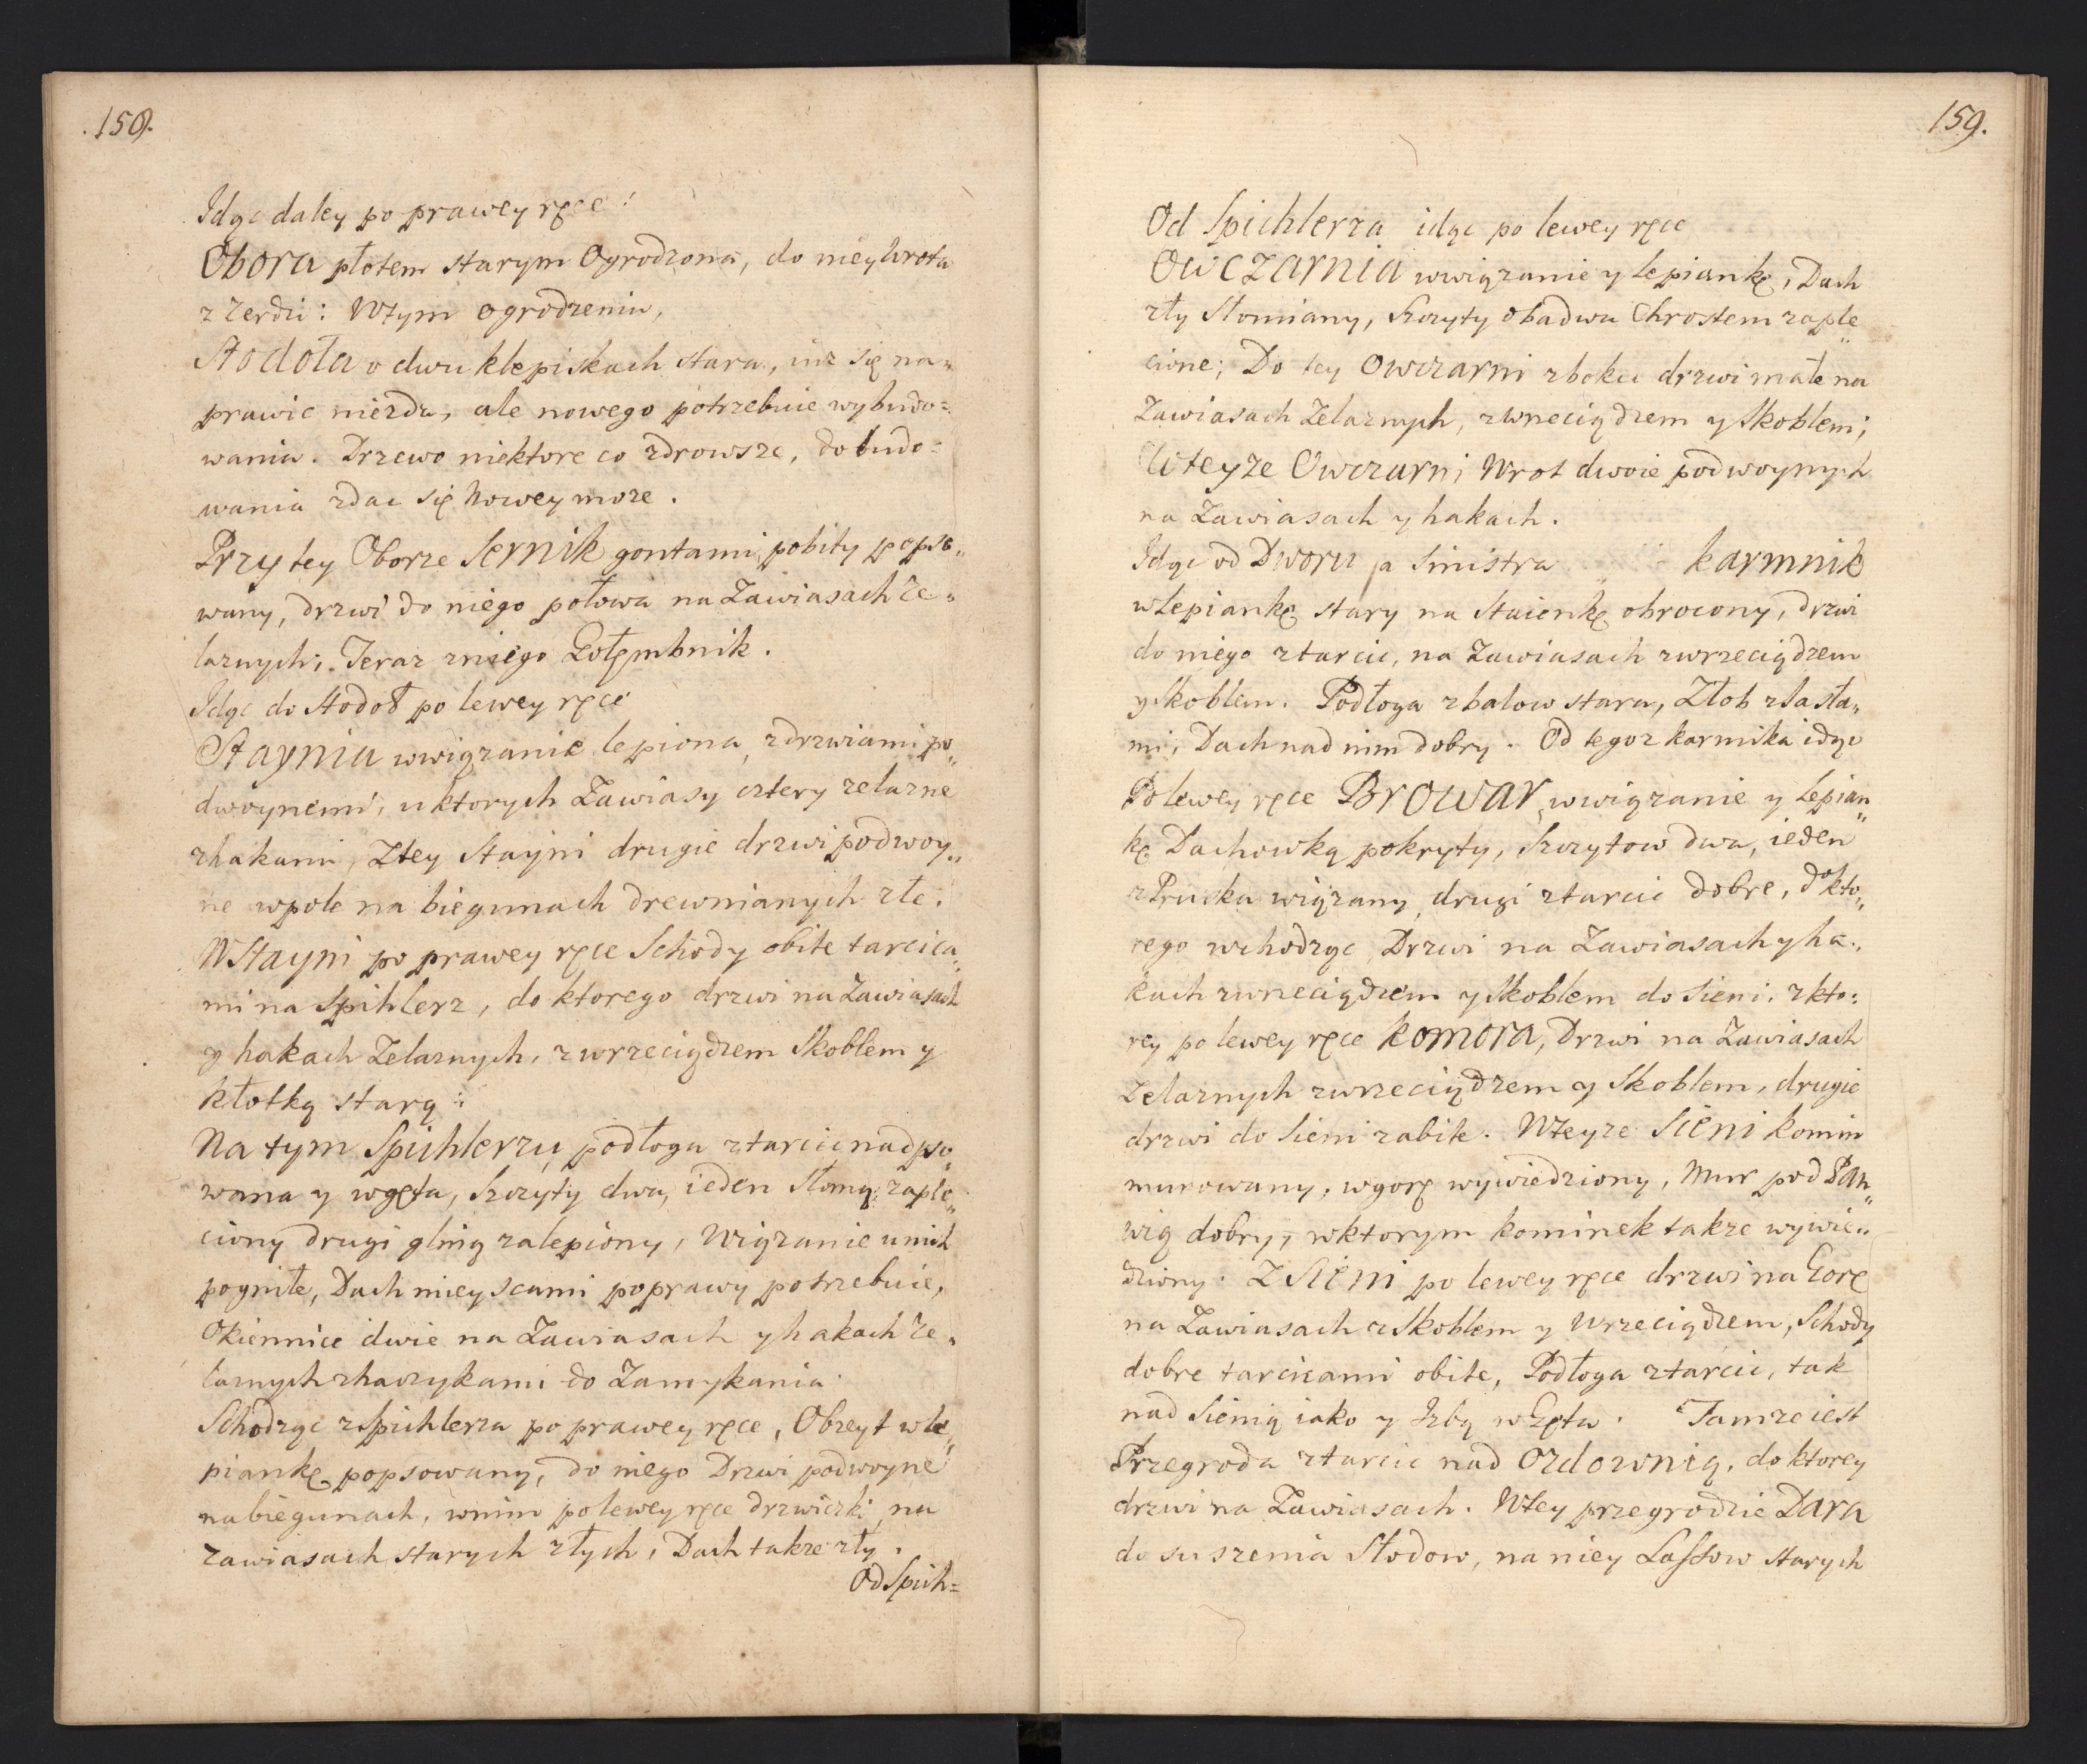 .158.
Idąc daley po prawey ręce:
Obora płotem starym Ogrodzona, do niey Wrota
z Zerdzi: Wtym ogrodzeniu,
Stodoła o dwu klepiskach stara, iuz się na„
prawic niezda, ale nowego potrzebuie wybudo=
wania. Drzewo niektore co zdrowsze, do budo=
wania zdac się Nowey moze.
Przy tey Oborze Sernik gontami pobity popso„
wany, drzwi do niego połowa na Zawiasach Ze„
laznych, Teraz zniego Gołęmbnik.
Idąc do Stodoł po lewey ręce
Staynia wwiązanie lepiona, zdrzwiami po„
dwoynemi, u ktorych Zawiasy cztery zelazne
zhakami, Ztey Stayni drugie drzwi podwoy„
ne wpole na biegunach drewnianych złe.
WStayni po prawey ręce Schody obite tarcica„
mi na Spihlerz, do ktorego drzwi na Zawiasach
y hakach Zelaznych, zwrzeciądzem Skoblem y
kłotką starą:
Na tym Spichlerzu podłoga ztarcic nadpso„
wana y wgęta, Szczyty dwa, ieden Słomą zaple„
ciony drugi gliną zalepiony, Wiązanie unich
pogniłe, Dach mieyscami poprawy potrzebuie,
Okiennice dwie na Zawiasach y hakach Ze„
laznych zhaczykami do Zamykania.
Schodząc z Spichlerza po prawey ręce, Obzeyt w le„
piankę popsowany, do niego Drzwi podwoyne
na biegunach, wnim po lewey ręce drzwiczki na
zawiasach starych złych, Dach takze zły.
Od Spich=
159.
Od Spichlerza idąc po lewey ręce
OWCZARNIA wwiązanie y lepiankę, Dach
zły Słomiany, Szczyty obadwa Chrostem zaple„
cione; Do tey Owczarni zboku drzwi małe na
Zawiasach Zelaznych, zwrzeciądzem y Skoblem;
Wteyze Owczarni Wrot dwoie podwoynych
na Zawiasach y hakach.
Idąc od Dworu a Sinistra karmnik
w lepiankę stary na Staienkę obrocony, drzwi
do niego ztarcic, na Zawiasach zwrzeciądzem
y Skoblem. Podłoga zbalow stara, Złob zlasła„
mi, Dach nad nim dobry. Od tegoz karmika idąc
Po lewey ręce Browar, wwiązanie y Lepian„
kę Dachowką pokryty, Szczytow dwa, ieden
z Pruska wiązany, drugi ztarcic dobre, do kto„
rego wchodząc Drzwi na Zawiasach y ha„
kach zwrzeciądzem y Skoblem do Sieni, z kto„
rey po lewey ręce komora, Drzwi na Zawiasach
Zelaznych zwrzeciądzem y Skoblem, drugie
drzwi do Sieni zabite. Wteyze Sieni komin
murowany, wgorę wywiedziony, Mur pod Pan„
wią dobry, wktorym kominek takze wywie„
dziony. Z Sieni po lewey ręce drzwi na Gorę
na Zawiasach z Skoblem y Wrzeciądzem, Schody
dobre tarcicami obite, Podłoga ztarcic, tak
nad Sienią iako y Izbą wGęta. Tamze iest
Przegroda ztarcic nad Ozdownią, do ktorey
drzwi na Zawiasach. Wtey przegrodzie Dara
do suszenia Słodow, na niey Lassow starych